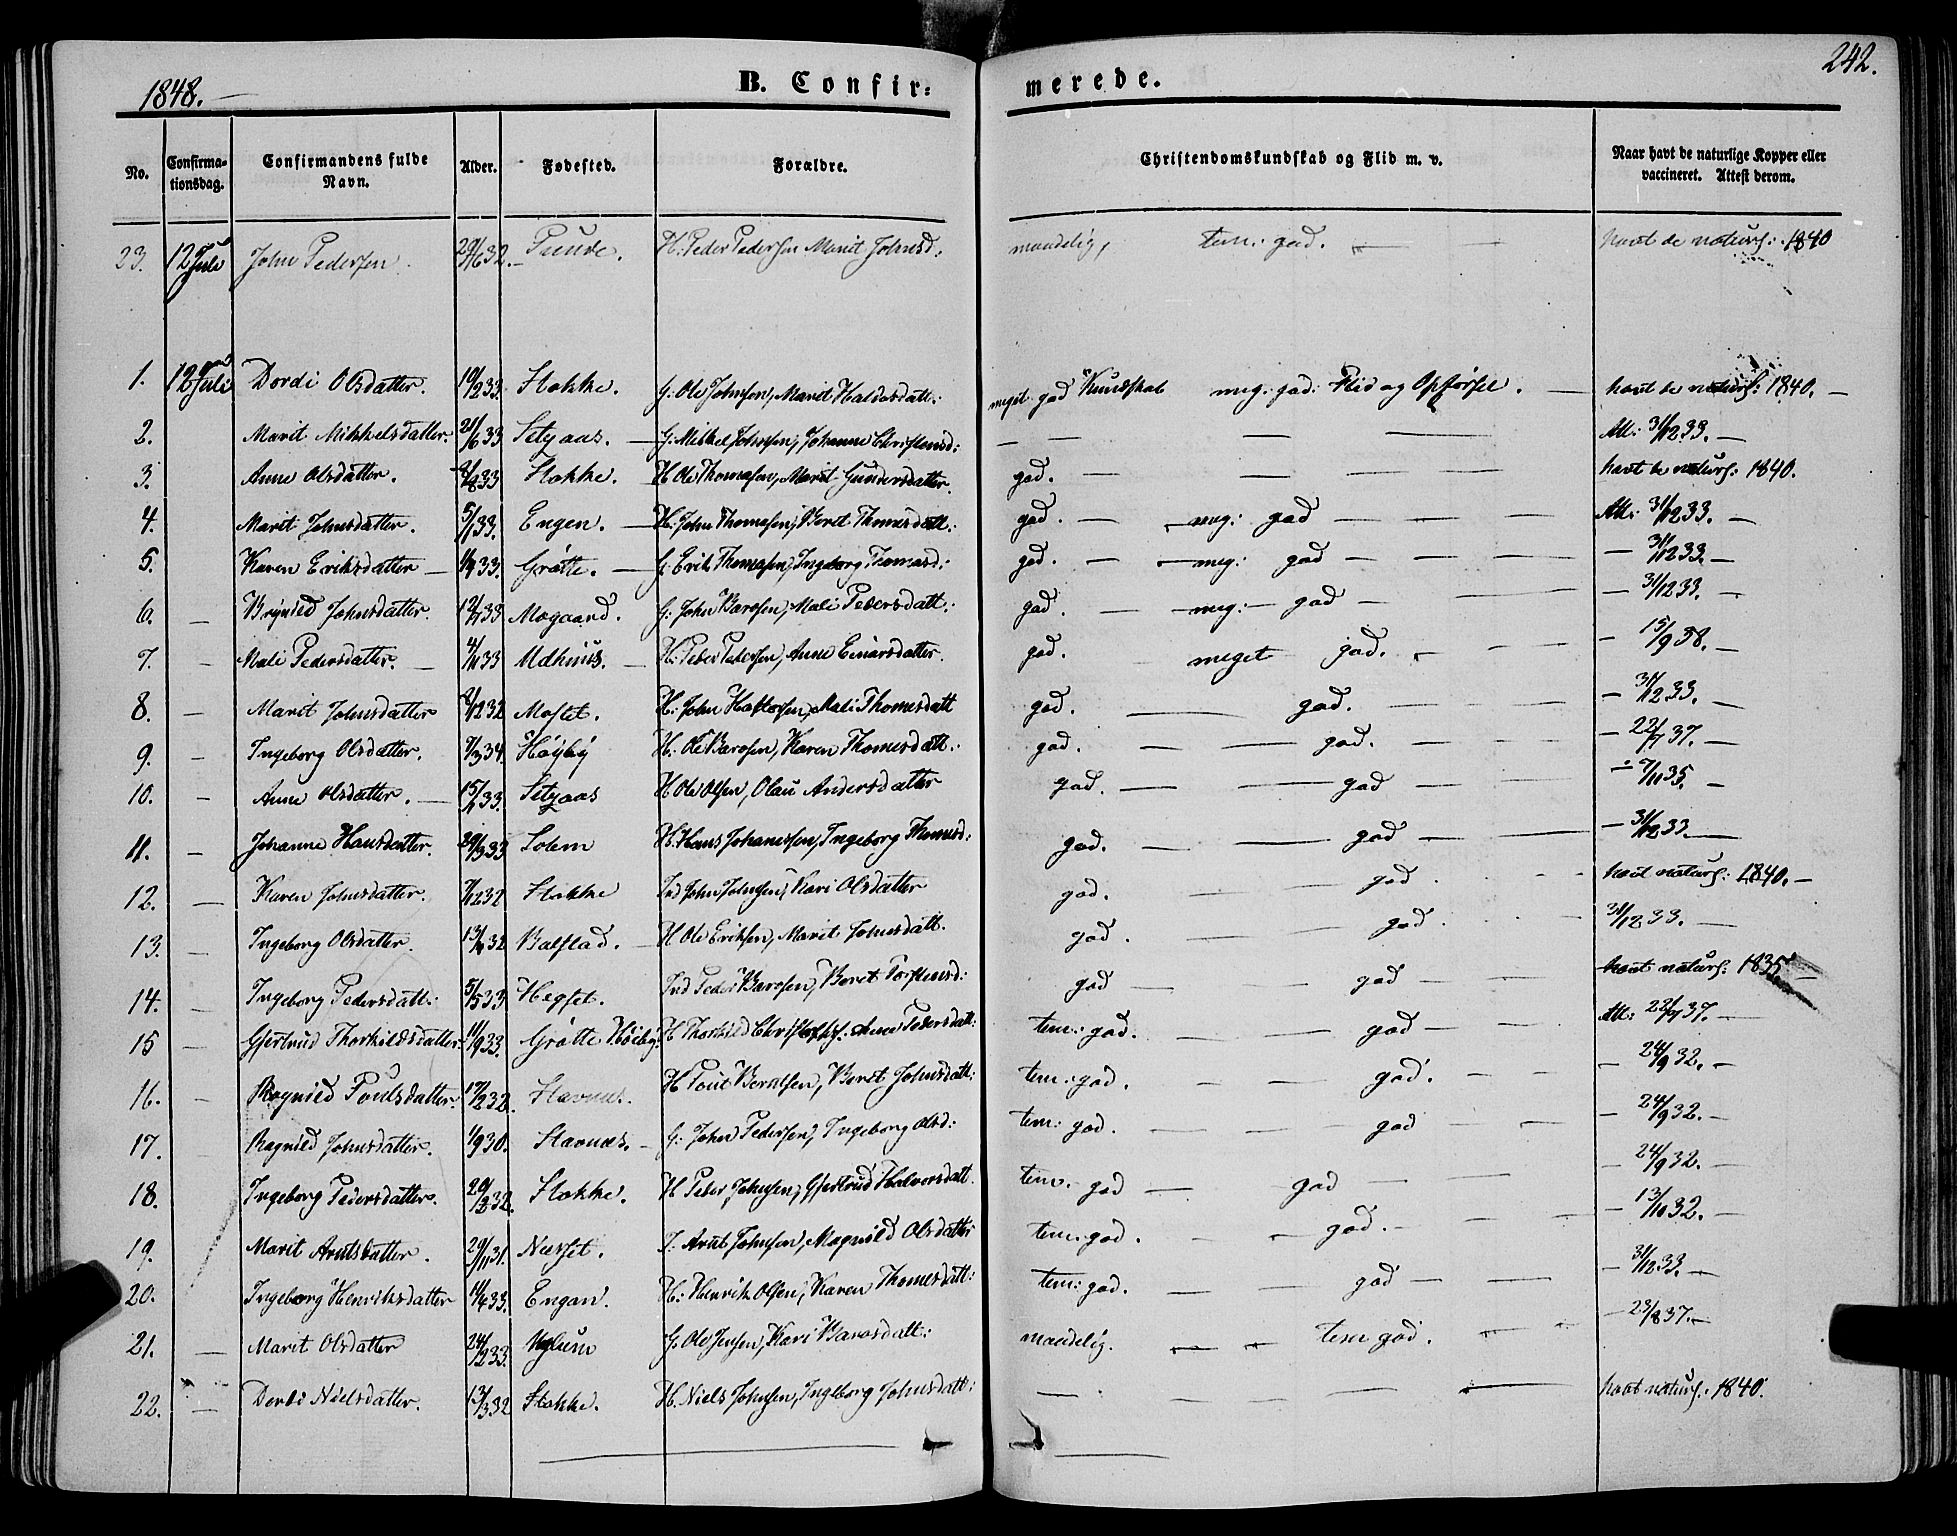 1848.
B. Confir:
merede.
242.
No.
Confirma-
tionsdag.
Confirmandens fulde
Navn.
Alder.
Fødested.
Forældre.
Christendomskundskab og Flid m. v.
Naar havt de naturlige Kopper eller
vaccineret. Attest derom.
23. 12 Juli John Pedersen. 29/6 32. H: Peder Pedersen Marit Johnsd: maadelig, tem: god. havt de naturl: 1840
1. 12 Juli Dordi Olsdatter. 19/2 33. Stokke. G: Ole Johnsen, Marit Haldosdatt: meget god Kundskab meg: god: Flid og Opførsel. havt de naturl: 1840.
2. Marit Mikkelsdatter. 21/6 33 Setsaas. G: Mikkel Johnsen, Johanne Christensd: Att: 31/12 33.
3. Anne Olsdatter. 2/8 33 Stokke. H Ole Thomasen, Marit Gundersdatter. god. havt de naturl: 1840.
4. Marit Johnsdatter. 5/1 33. Engen. H. John Thomasen, Beret Thomasdatt: god. meg: god Att: 31/12 33.
5. Karen Eriksdatter 33. Grøtte. G: Erik Thomasen, Ingeborg Thomasd: god. meg: god 31/12 33.
6. Brynild Johnsdatter. 12/1 33 Mogaard. G: John Barosen, Mali Pedersdatt: god. meg: god 31/12 33.
7. Mali Pedersdatter. 4/11 33 Udhuus. H: Peder Pedersen, Anne Einarsdatter. god. meget god. 15/9 38.
8. Marit Johnsdatter 2/12 32 Mostet. H: John Haldosen, Mali Thomasdatt god. god. 31/12 33.
9. Ingeborg Olsdatter. 7/3 34. Høyby H. Ole Barosen, Karen Thomasdatt: god. god. 22/7 37.
10. Anne Olsdatter. 15/1 33. Setsaas H Ole Olsen, Olau Andersdatter god. god 7/10 35.
11. Johanne Hansdatter. 29/3 33 Solem H. Hans Johannesen, Ingeborg Thomasd: god. god 31/12 33.
12. Karen Johnsdatter. 7/12 32 Stokke Ind John Johnsen, Kari Olsdatter god. god havt naturl: 1840.
13. Ingeborg Olsdatter. 32 Balstad. H Ole Eriksen, Marit Johnsdatt. god. god. 31/12 33.
14. Ingeborg Pedersdatt: 5/5 33 Hegset. Ind Peder Barosen, Beret Torstensd: god god havt naturl: 1835
15 Gjertrud Thorkildsdatter. 11/9 33. Grøtte Høiby. H Thorkild Christophs: Anne Pedersdatt: tem: god. god Att: 22/7 37.
16. Ragnild Poulsdatter. 17/2 32. Stavnes. H Poul Berntsen, Beret Johnsdatt: tem: god. god. 24/9 32.
17. Ragnild Johnsdatter. 1/9 30. Stavnes. G: John Pedersen, Ingeborg Olsd: tem: god. god 24/9 32.
18. Ingeborg Pedersdatter. 20/2 32. Stokke. H Peder Johnsen, Gjertrud Halvorsdatt. tem. god god 24/9 32.
19. Marit Arntsdatter. 29/11 31. Nerset. I. Arnt Johnsen, Magnild Olsdatter tem: god. god. 13/10 32.
20. Ingeborg Henriksdatter 14/6 33. Engan. H: Henrik Olsen, Karen Thomasdatt: tem: god. god 31/12 33.
21. Marit Olsdatter 24/2 33. G: Ole Jensen, Kari Barosdatt: maadelig. tem god. 23/8 37.
22. Dordi Nielsdatter. 13/3 32 Stokke. H. Niels Johnsen, Ingeborg Johnsdatt: havt naturl: 1840.